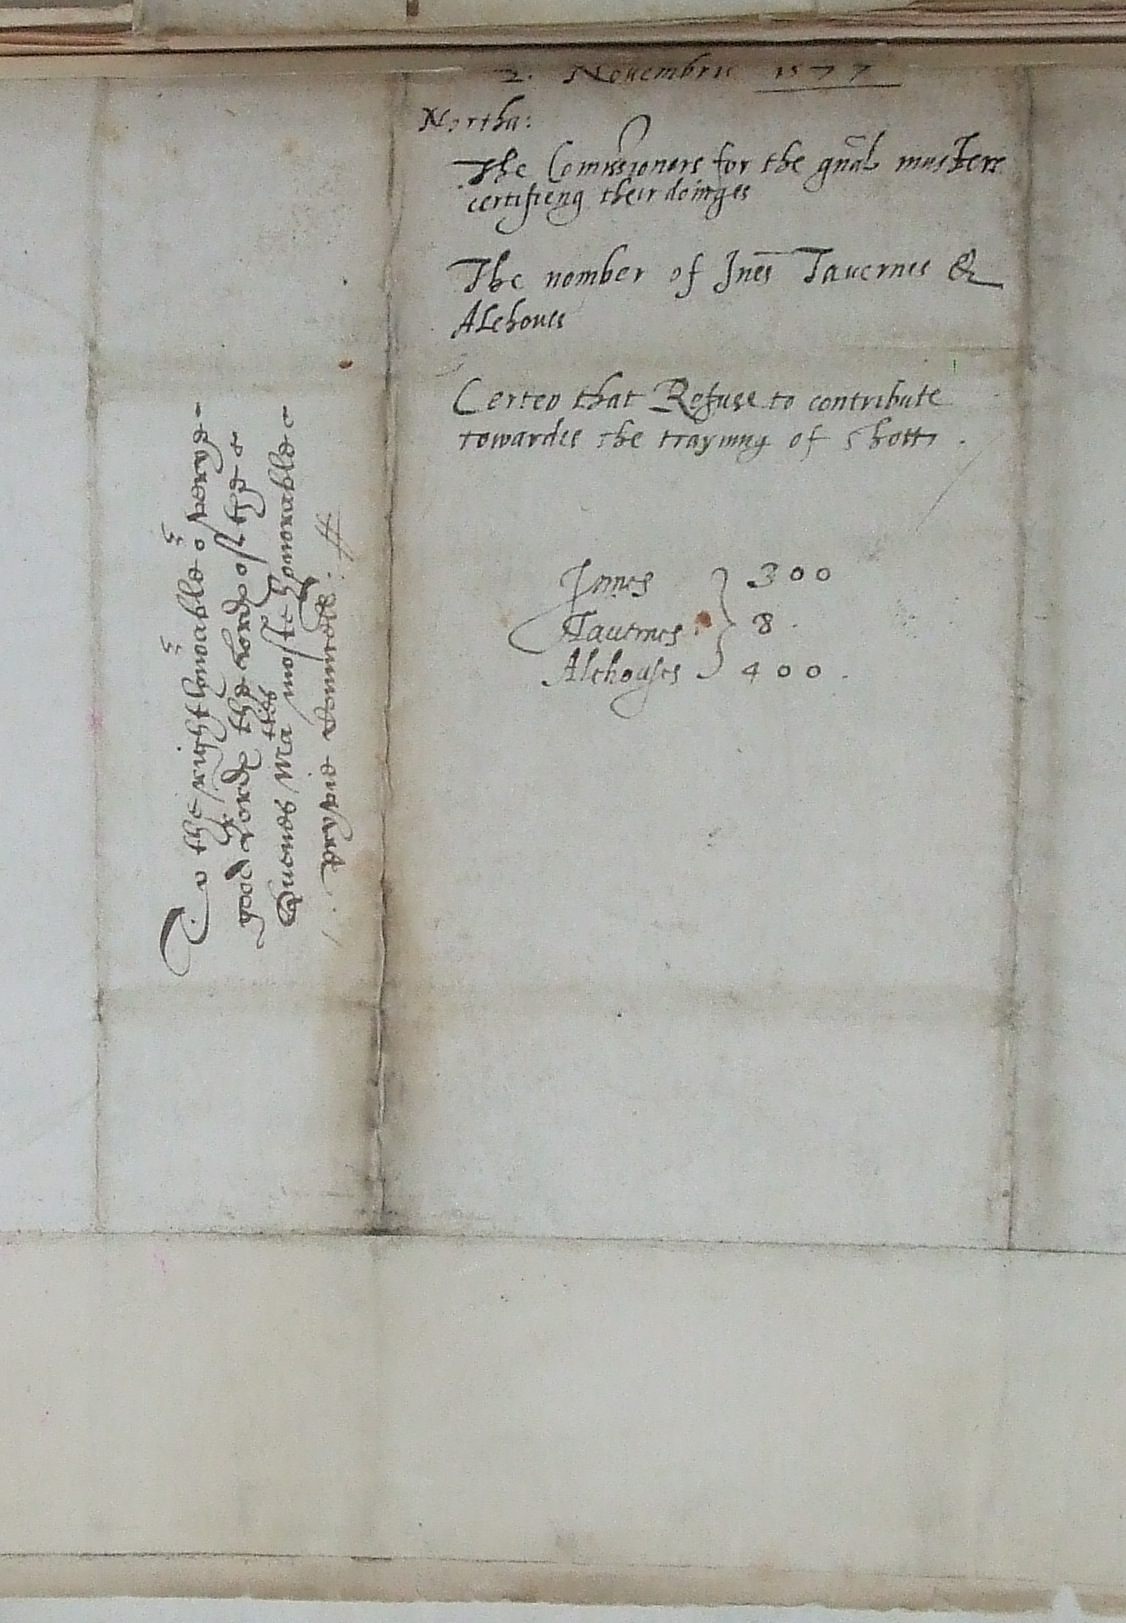 2. Novembris 1577
Northa:
The Comissioners for the gnãl musters
certifieng their doinges
The nomber of Jnẽs Tavernes &
Alehouses
Certen that Refuse to contribute
towardes the trayning of shott.
Jnnes 300
Tavernes 8.
Alehouses 400.
To the right honorable or verye
good Lordes the Lordes of the
Quenes Matties moste honorable
privie Counsell: